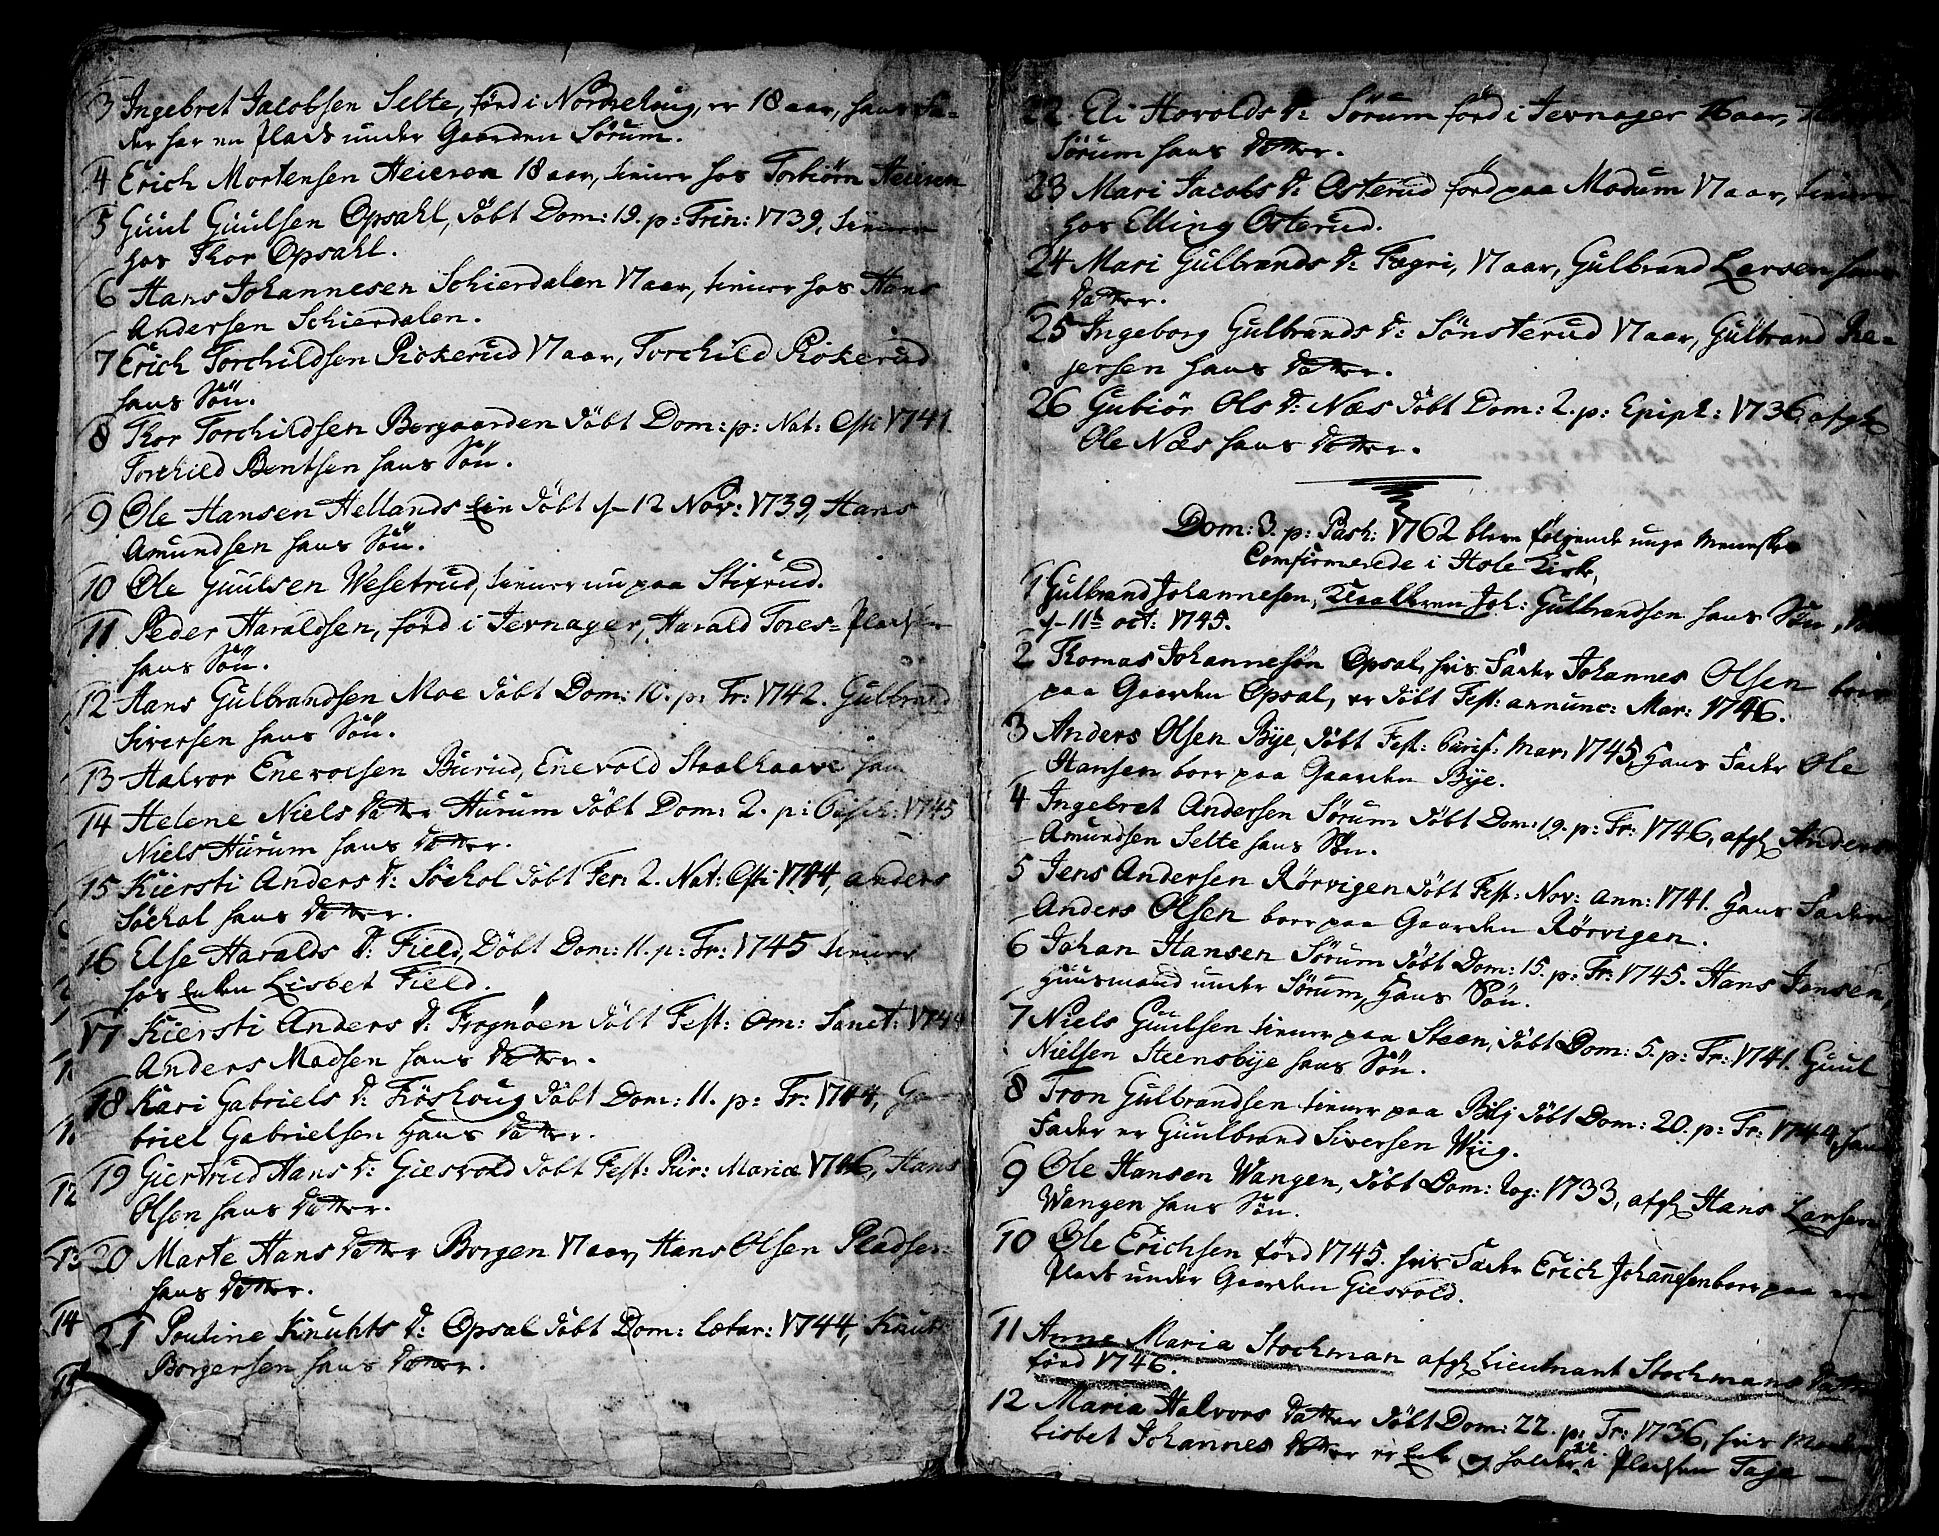 3 Ingebret Jacobsen Selte, förd i Norderhoug, er 18 aar, hans Fa-
der har en Plads under Gaarden Sörum.
4 Erich Mortensen Heieren 18 aar, tiener hos Torbiörn Heieren
5 Guul Guulsen Opsahl, döbt Dom: 19. p: Trin: 1739, tiener
hos Thor Opsahl.
6 Hans Johannesen Schierdalen 17 aar, tiener hos Hans
Andersen Schierdalen.
7 Erich Torchildsen Rökerud 17 aar, Torchild Rökerud
hans Sön.
8 Thor Torchildsen Borgaarden döbt Dom: p: Nat: Csti 1741.
Torchild Bentsen hans Sön.
9 Ole Hansen Hellands Ein döbt d– 12 Nov: 1739, Hans
Amundsen hans Sön.
10 Ole Guulsen Wesetrud, tiener nu paa Stixrud.
11 Peder Haraldsen, förd i Jevnager, Harald Tores= Pladsen
hans Sön.
12 Hans Gulbrandsen Moe döbt Dom: 10. p: Tr: 1742. Gulbrand
Siversen hans Sön.
13 Halvor Enevolsen Burud, Enevold Staalhaave
14 Helene Niels datter Hurum döbt Dom: 2. p: Epiph: 1745
Niels Hurum hans datter.
15 Kiersti Anders d: Söehol döbt Fer: 2. Nat: Csti 1744, Anders
Söehol hans datter.
16 Else Haralds d: Field, Döbt Dom: 11. p: Tr: 1745 tiener
hos Enken Lisbet Field.
17 Kiersti Anders d: Frognöen döbt Fest: Om: Sanct: 1744
Anders Madsen hans datter.
18 Kari Gabriels d: Fiöshoug döbt Dom: 11. p: Tr: 1744, Ga-
briel Gabrielsen Hans datter.
19 Giertrud Hans d: Giesvold döbt Fest: Pur: Mariæ 1746, Hans
Olsen hans datter.
20 Marte Hans datter Borgen 17 aar, Hans Olsen Pladsen
hans datter.
21 Pouline Knuhts d: Opsal döbt Dom: Lætar: 1744, Knut
Borgersen hans datter.
22. Eli Horolds d: Sörum förd i Jevnager 16 aar,
Sörum hans datter.
23 Mari Jacobs d: Osterud förd paa Modum 17 aar, tiener
hos Elling Osterud.
24 Mari Gulbrands d: Fægri, 17 aar, Gulbrand Larsen hans
datter.
25 Ingeborg Gulbrands d: Sönsterud 17 aar, Gulbrand Re-
jersen hans datter.
26 Gubiör Ols d: Næs döbt Dom: 2. p: Epiph: 1736, afgl
Ole Næs hans datter.
Dom: 3. p: Pash: 1762 bleve følgende unge Mennesker
Comfirmerede i Hole Kirke,
1 Gulbrand Johannesen, Joh: Gulbrandsen hans Sön,
d– 11te oct: 1745.
2 Thomas Johannesön Opsal, hvis Fader Johannes Olsen boer
paa Gaarden Opsal, er döbt Fest: annunc: Mar: 1746.
3 Anders Olsen Bÿe, döbt Fest: Purif: Mar: 1745, Hans Fader Ole
Hansen boer paa Gaarden Bÿe.
4 Ingebret Andersen Sörum döbt Dom: 19. p: Tr: 1746, afgl Anders
Amundsen Selte hans Sön.
5 Jens Andersen Rörvigen döbt Fest: Nov: Ann: 1741. Hans Fader
Anders Olsen boer paa Gaarden Rörvigen.
6 Johan Hansen Sörum döbt Dom: 15. p: Tr: 1745. Hans Jensen,
Huusmand under Sörum, Hans Sön.
7 Niels Guulsen tiener paa Steen, döbt Dom: 5. p: Tr: 1741. Guul
Nielsen Steensbÿe hans Sön.
8 Tron Gulbrandsen tiener paa Bilj döbt Dom: 20. p: Tr: 1744, hans
Fader er Guulbrand Siversen Wiig.
9 Ole Hansen Wangen, döbt Dom: Rog: 1733, afgl Hans Larsen
Wangen hans Sön.
10 Ole Erichsen förd 1745. hvis Fader Erich Johannesen boer paa en
Plads under Gaarden Giesvold.
11 Anne Maria Stochman afgl Lieutnant Stochmans datter
förd 1746.
12 Maria Halvors datter döbt Dom: 22. p: Tr: 1736, hvis Moder
Lisbet Johannes datter er Enke og i Pladsen Taje –
12
13
14
15